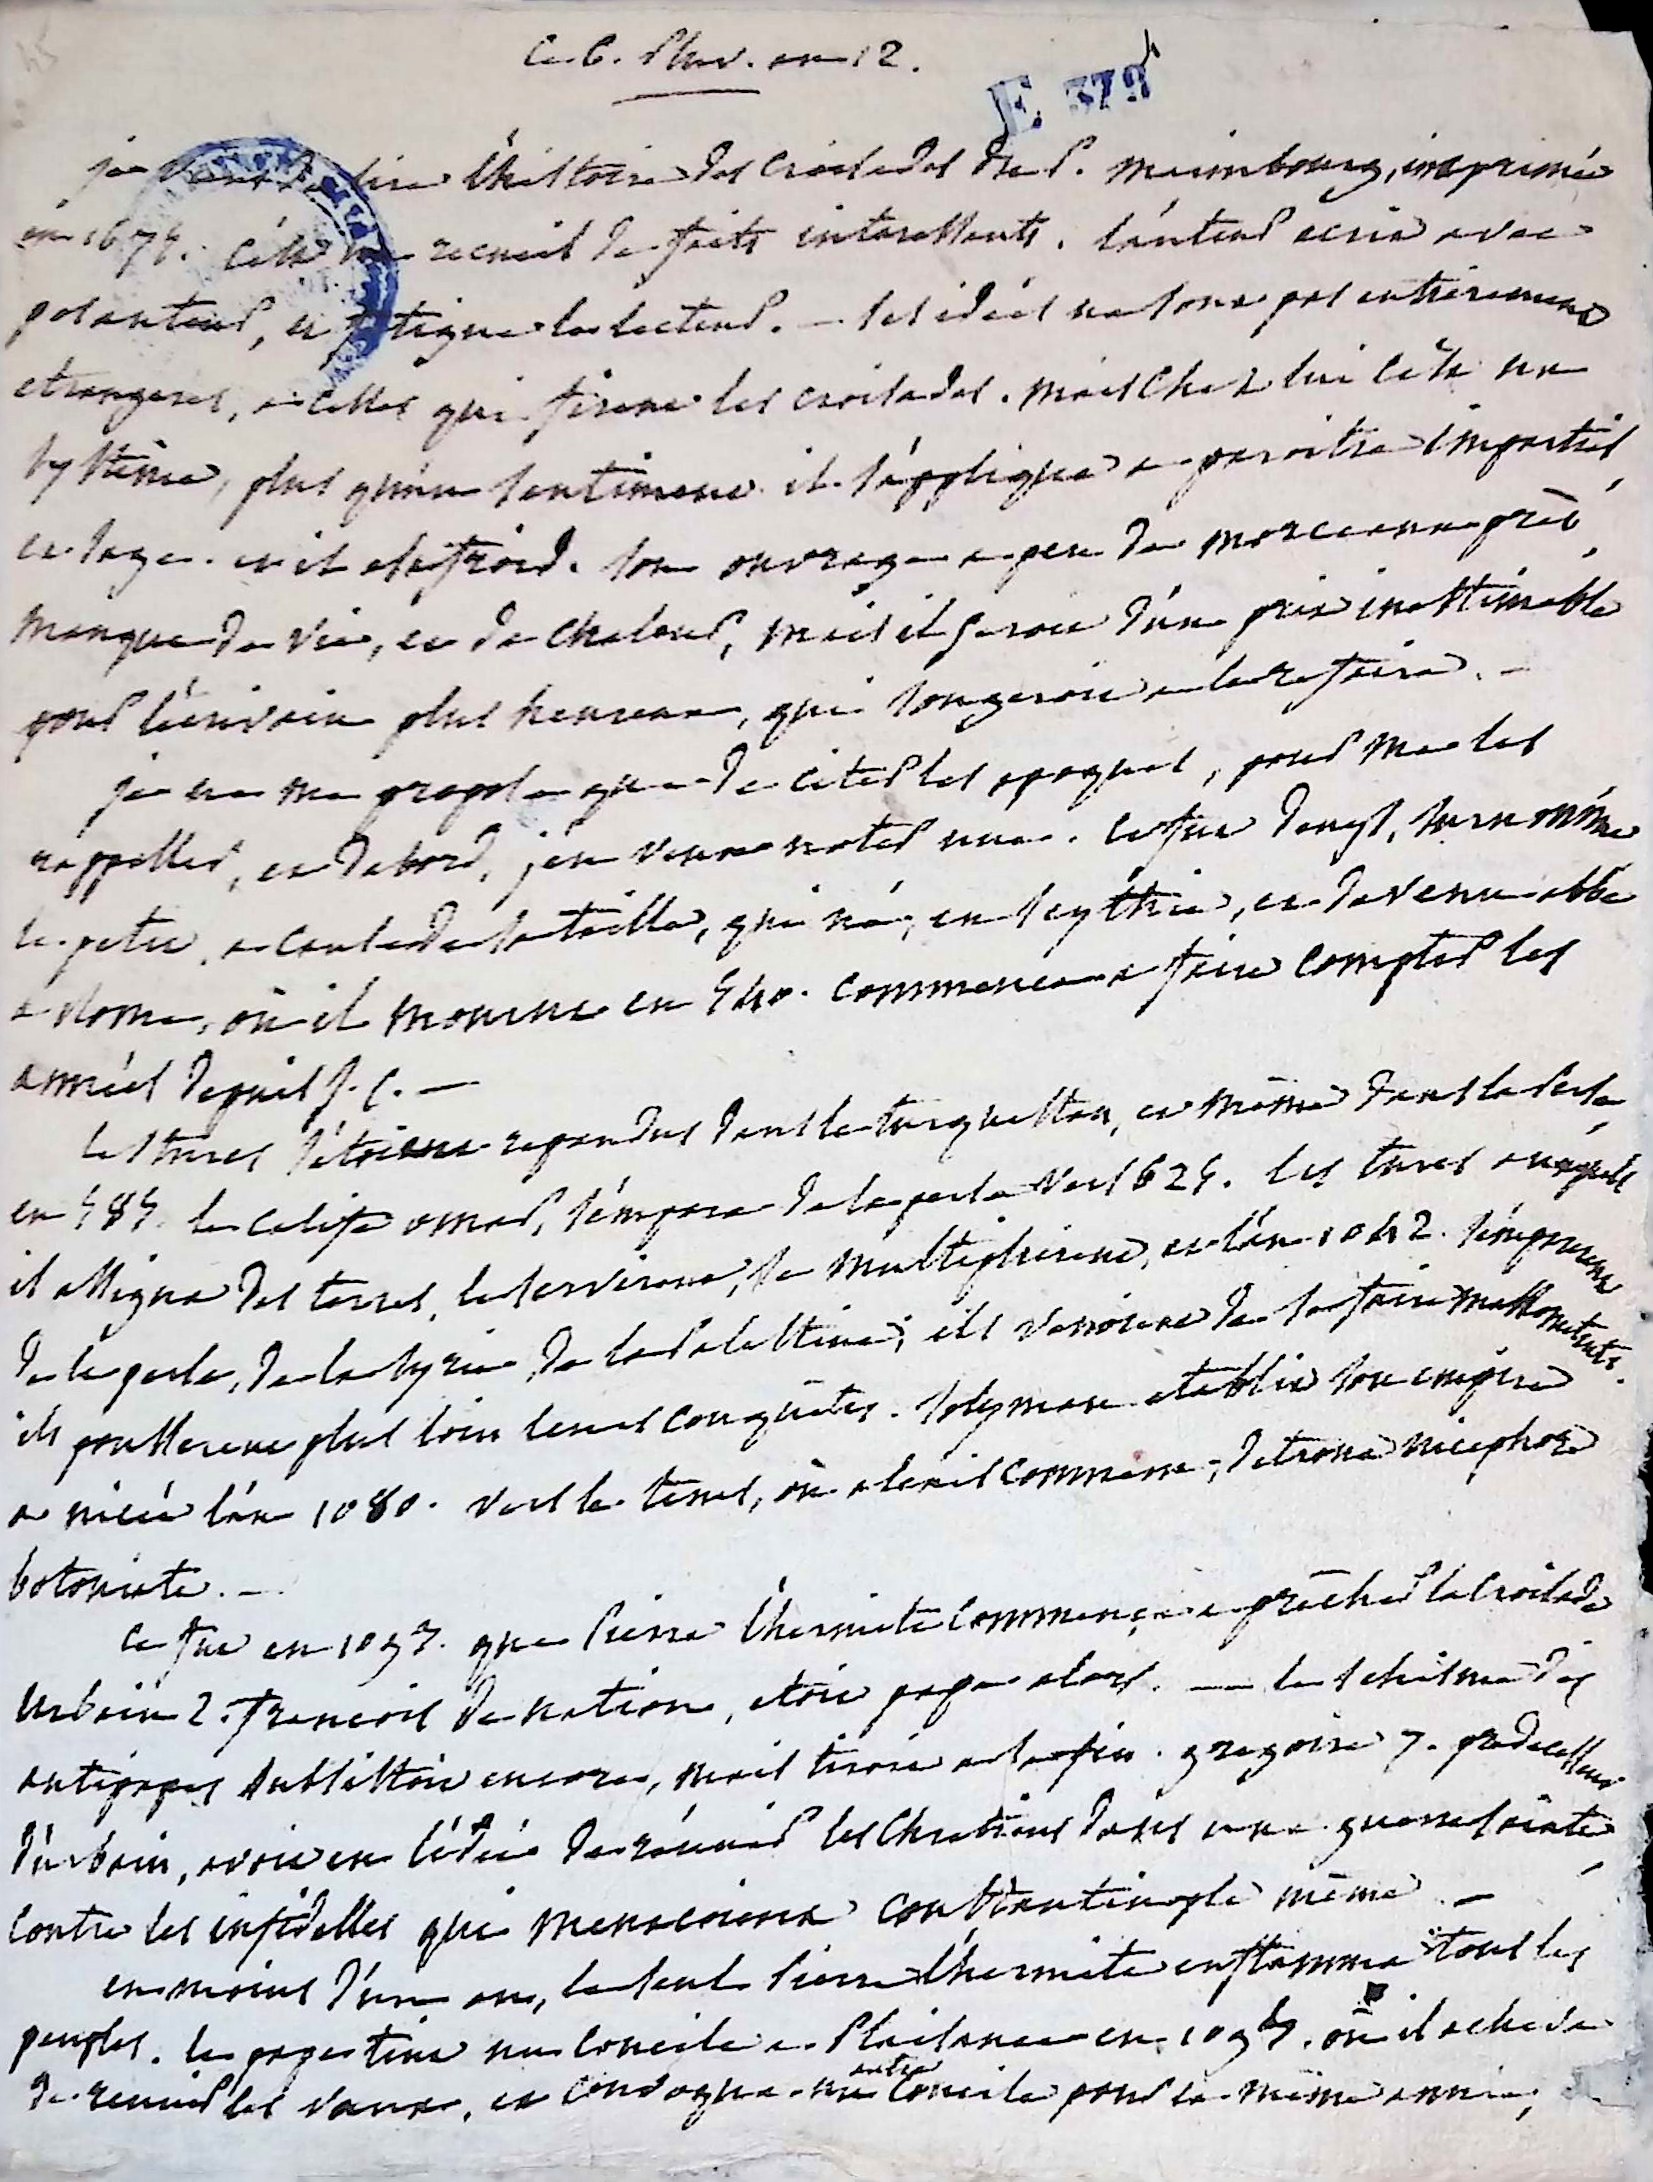 Ce 6. Pluv. an 12.
E 379
je viens de lire l'histoire des croisades du P. Maimbourg, imprimée
en 1675. c'est un recueil de faits interessants. l'auteur ecrit avec
pesanteur, et fatigue le lecteur. — ses idées ne sont pas entierement
etrangeres, a celles qui firent les croisades. mais chez lui c'est un
systême, plus qu'un sentiment. il s'applique a paroitre impartial,
et sage. et il est froid. son ouvrage a peu de morceaux
manque de vie, et de chaleur, mais il seroit d'un prix inestimable
pour l'écrivain plus heureux, qui songeroit a le refaire. —
je ne me propose que de citer les epoques, pour me les
rappeller, et d'abord, j'en veux noter une. ce fut denys, surnommé
le petit, a cause de sa taille, qui né, en scythie, et devenu abbé
a Rome, où il mourut en 540. commença a faire compter les
années depuis J. C. —
les turcs s'étoient repandus dans le turquestan, et même dans la Perse,
en 585. le calife omar, s'empara de la perse vers 625. les turcs auxquels
il assigna des terres, le servirent, se multiplierent, et l'an 1042. s'emparerent
de la perse, de la syrie, de la Palestine; ils venoient de se faire mahometants.
ils pousserent plus loin leurs conquêtes. Solyman etablit son empire
a nicée l'an 1080. vers le tems, où alexis comnene, detrona nicephore
botoniate. —
ce fut en 1093. que Pierre l'hermite commença a prêcher la croisade
Urbain 2. francois de nation, etoit pape alors. — le schisme des
antipapes subsistoit encore, mais tiroit a sa fin. gregoire 7. predecesseur
d'urbain, avoit eu l'idée de réunir les Chretiens dans une guerre sainte,
contre les infidelles qui menacoient Constantinople même. —
en moins d'un an, le seul Pierre l'hermite enflamma tous les
peuples. le pape tint un concile a Plaisance en 1095. où il acheva
de reunir les vœux, et convoqua un autre Concile pour la même année,